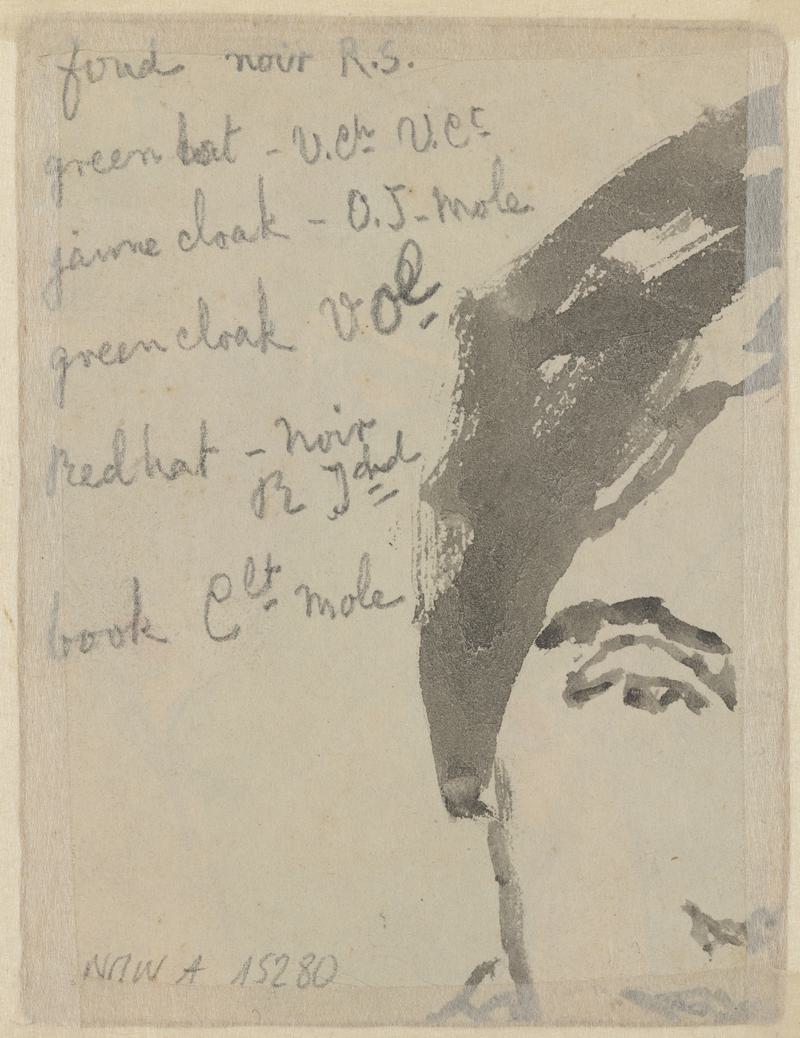 fond noir R.S.
green hat - V.Ch V.Ct
jaune cloak - O.J - mole
green cloak V Ol
Red hat - noir
R J
book C lt mole
NMW A 15280